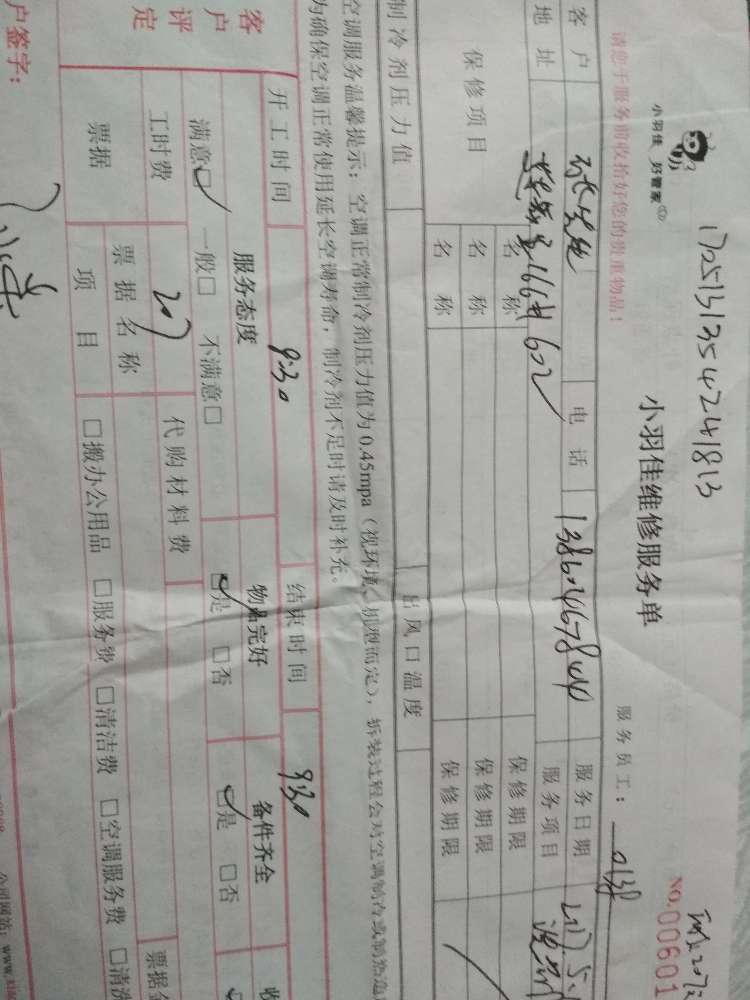 17051313542241813
小羽佳 好管家
小羽佳维修服务单
NO.00601
请您于服务前收拾好您的贵重物品！
服务员工： 0138
客户 电话 服务日期
地址 166#602 服务项目
保修项目 名称 保修期限
名称 保修期限
名称 保修期限
制冷剂压力值 出风口温度
空调服务温馨提示：空调正常制冷剂压力值为0.45mpa（视环境、机型而定），拆装过程会对空调制冷或制热造
为确保空调正常使用延长空调寿命，制冷剂不足时请及时补充。
开工时间 9:30 结束时间 9:30
客户评定 服务态度 物品完好 备件齐全 收
满意☑ 一般□ 不满意□ ☑是 □否 ☑是 □否
工时费 207 代购材料费
票据 票据名称 票据金
项目 □搬办公用品 □服务费 □清洁费 □空调服务费 □清洗
户签字：
公司网站：www.xi